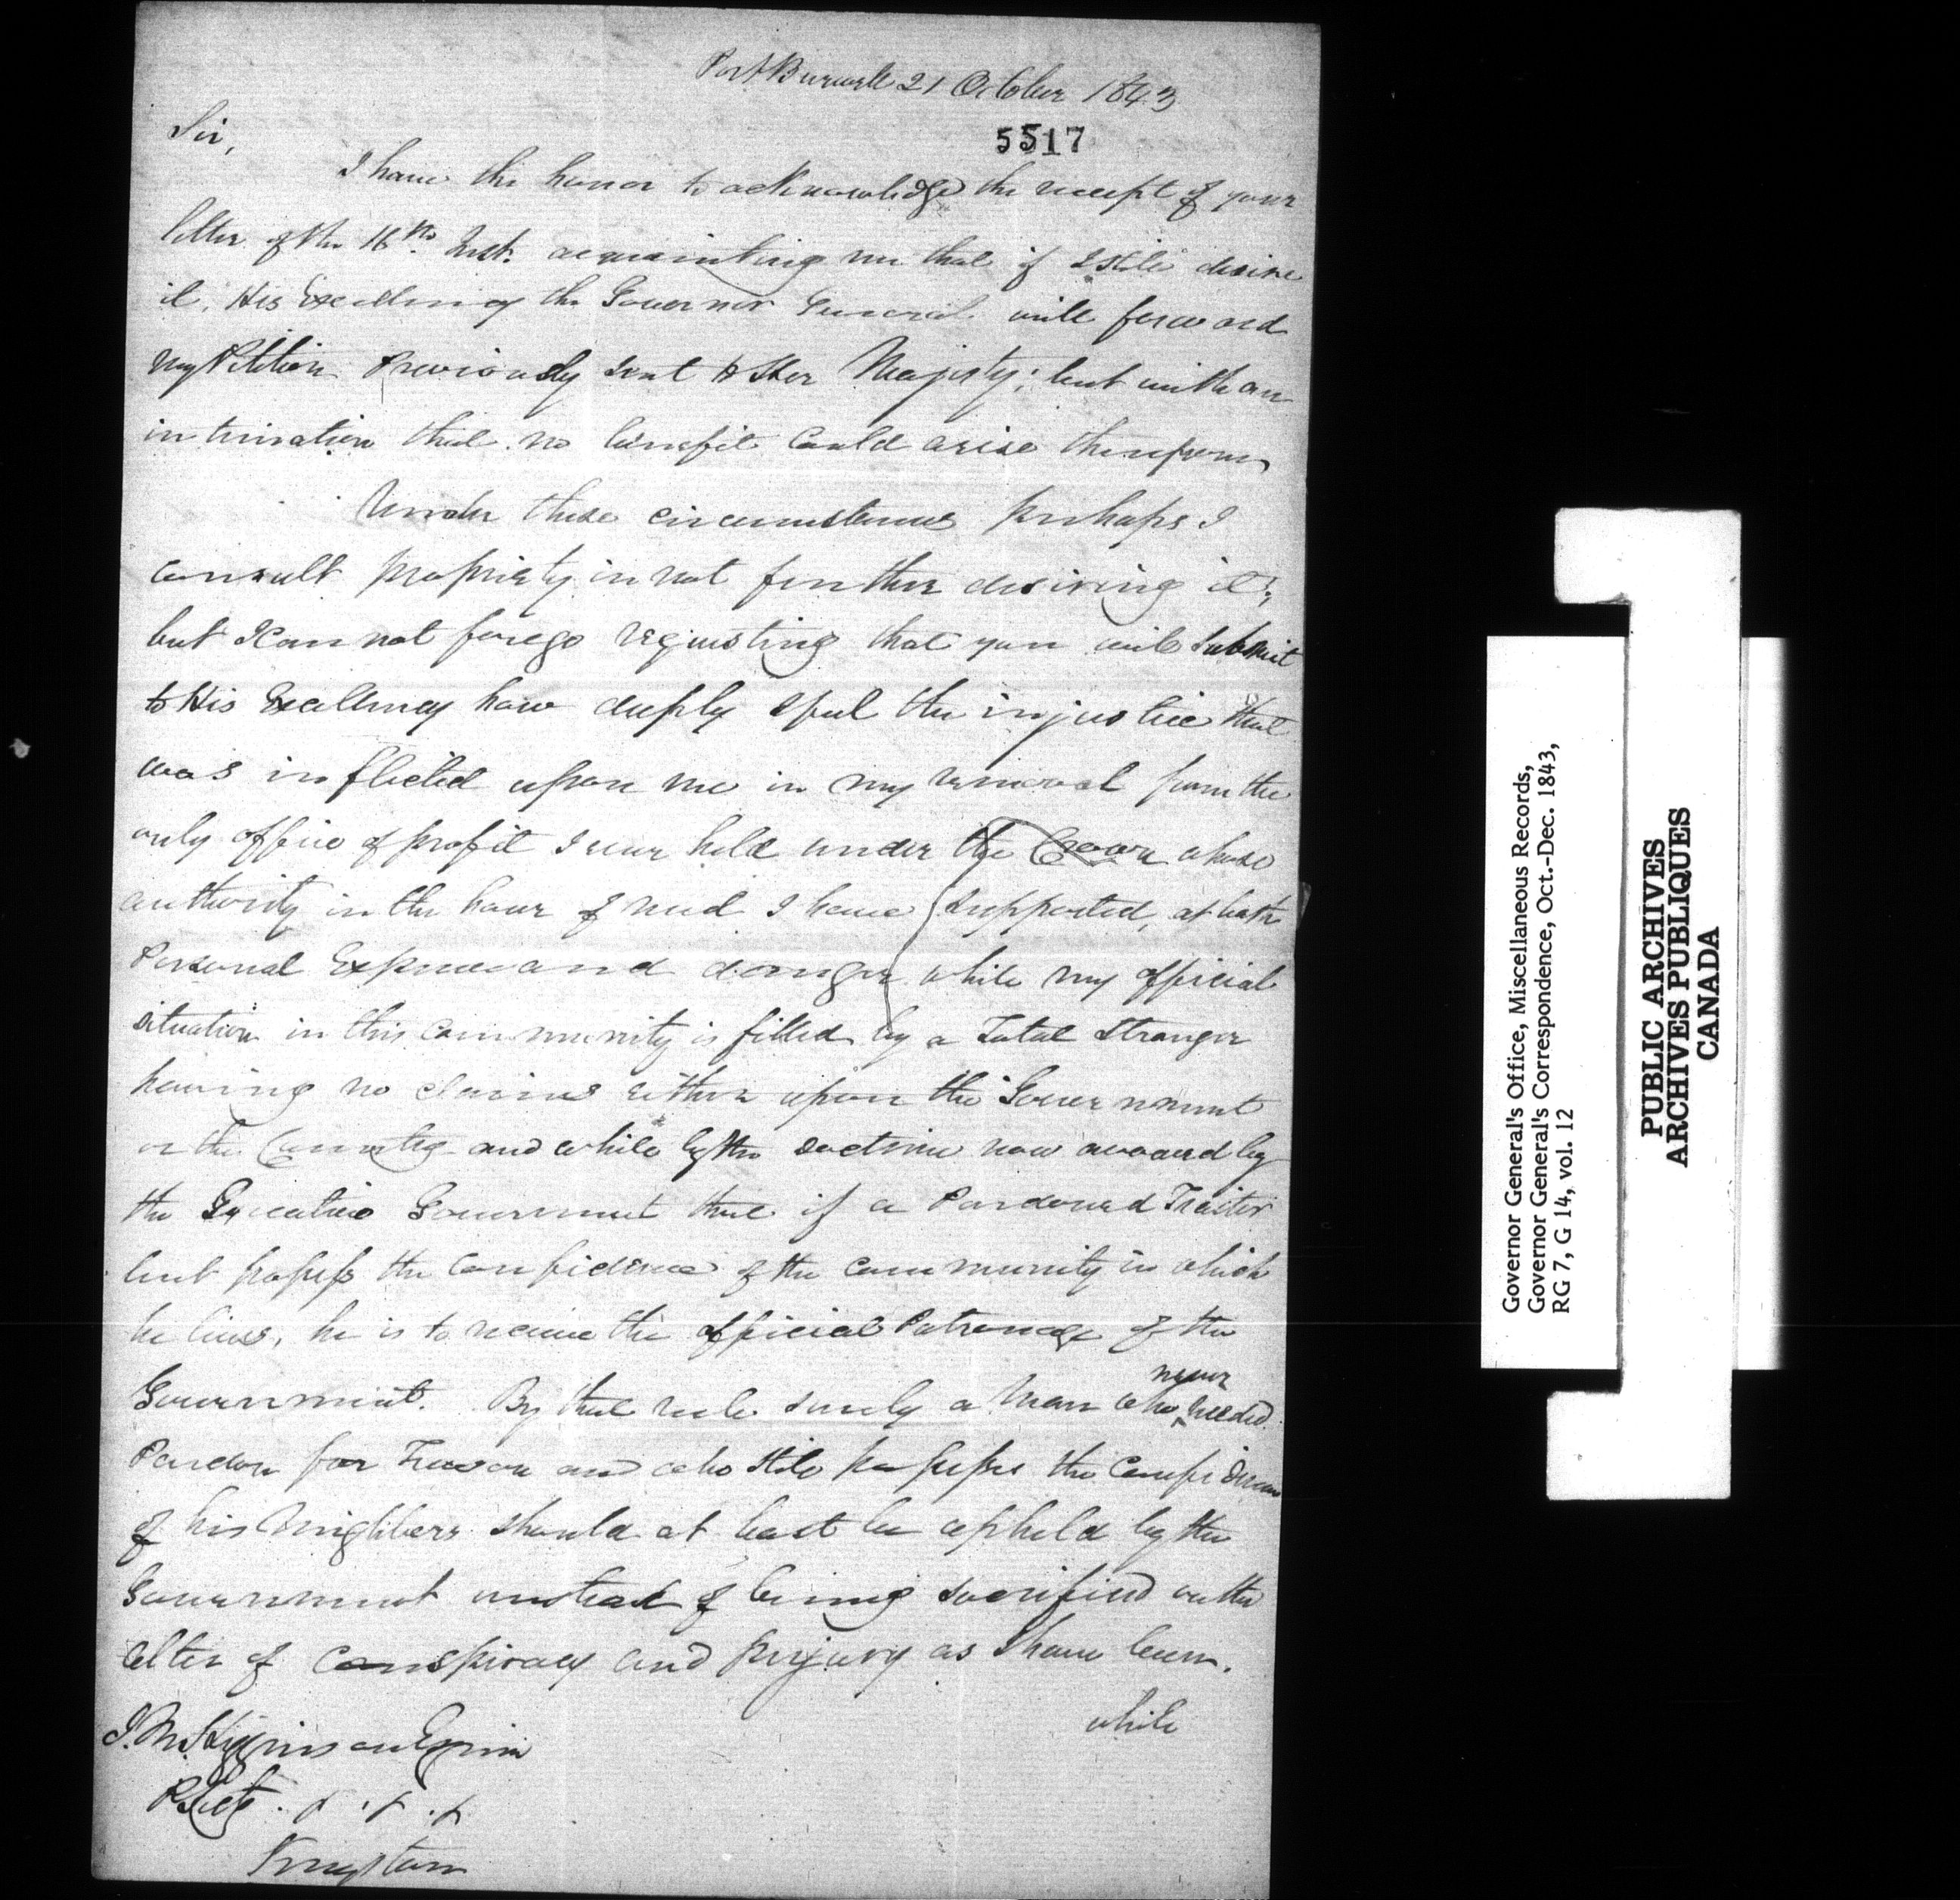 Port Burwell 21 October 1843
5517
Sir,
I have the honor to acknowledge the receipt of your
letter of the 16th Inst. acquainting me that if I still desire
it, His Excellency the Governor General will forward
my Petition previously sent to Her Majesty; but with an
intimation that no benefit could arise therefrom
Under these circumstances perhaps I
consult propriety in not further desiring it;
but I can not forego requesting that you will submit
to His Excellency how deeply I feel the injustice that
was inflicted upon me in my removal from the
only office of profit I ever held under the Crown whose
authority in the hour of need I have supported, at both
Personal Expense and danger while my official
situation in this community is filled by a Total Stranger
having no claims either upon the Government
or the Country and while by the doctrine now avowed by
the Executive Government that if a Pardoned Traitor
but possess the confidence of the community in which
he lives, he is to receive the official Patronage of the
never
Government. By that rule surely a man who needed
Pardon for Treason and who still possesses the confidence
of his Neighbers should at least be upheld by the
Government instead of being sacrificed on the
alter of conspiracy and perjury as I have been.
while
J. M. Higginson Esquire
P. Secty
Kingston
Governor General's Office, Miscellaneous Records,
Governor General's Correspondence, Oct.-Dec. 1843,
RG 7, G 14, vol. 12
PUBLIC ARCHIVES
ARCHIVES PUBLIQUES
CANADA